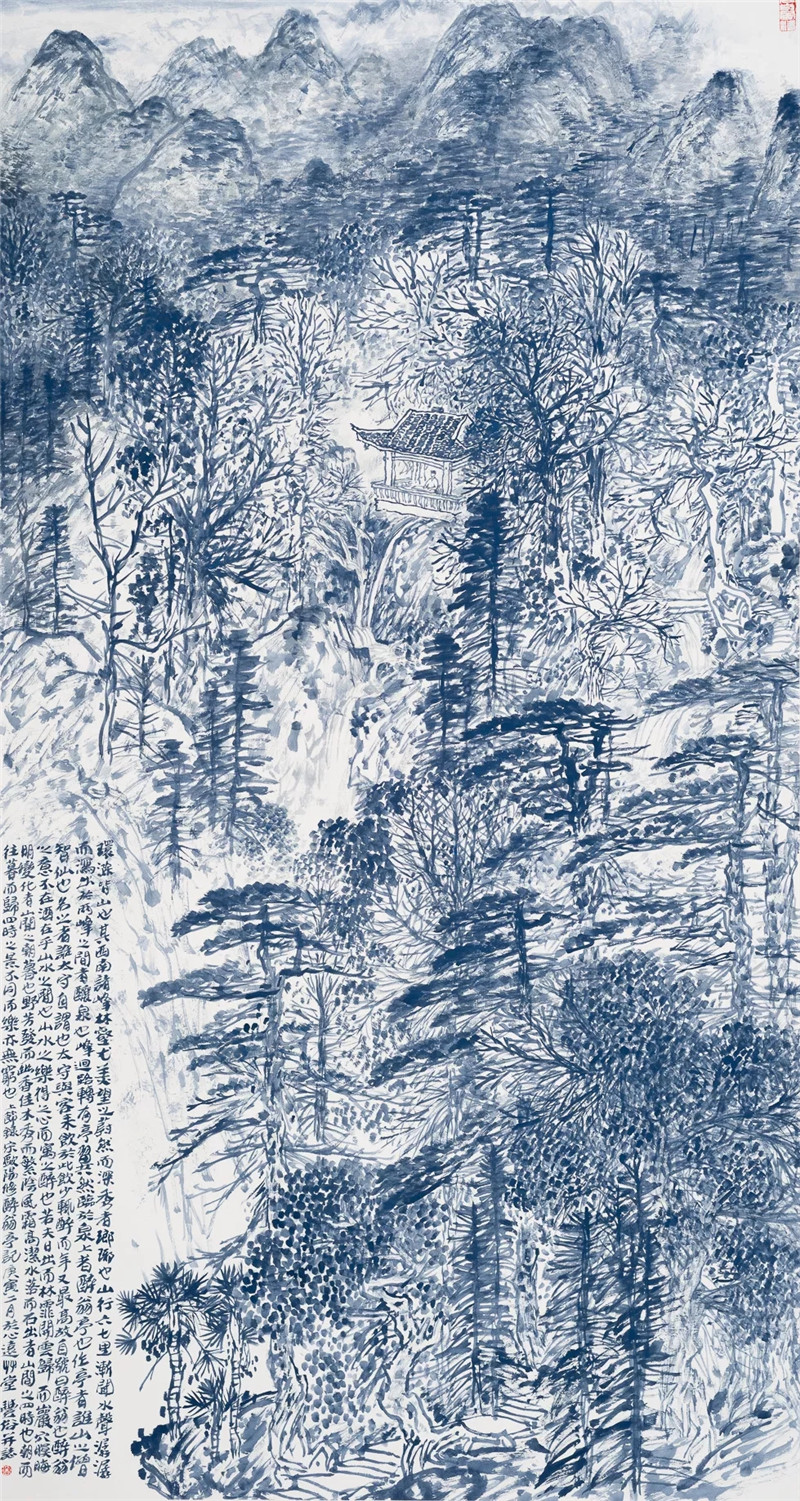 環滁皆山也其西南諸峰林壑尤美望之蔚然而深秀者瑯琊也山行六七里漸聞水聲潺潺
而瀉出於兩峰之間者釀泉也峰迴路轉有亭翼然臨於泉上者醉翁亭也作亭者誰山之僧
智仙也名之者誰太守自謂也太守與客來飲於此飲少輒醉而年又最高故自號曰醉翁也醉翁
之意不在酒在乎山水之間也山水之樂得之心而寓之醉也若夫日出而林霏開雲歸而巖穴暝晦
明變化者山間之朝暮也野芳發而幽香佳木秀而繁陰風霜高潔水落而石出者山間之四時也朝而
往暮而歸四時之景不同而樂亦無窮也 上節錄宋歐陽修醉翁亭記庚寅二月於心遠艸堂